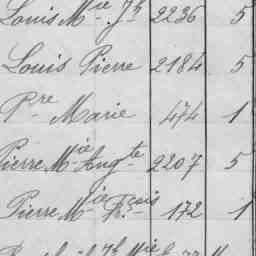 Louis Mie Jh 2236 5
Louis Pierre 2184 5
Pre Marie 474 1
Pierre Mie Augte 2207 5
Pierre Mie Fçois 172 1